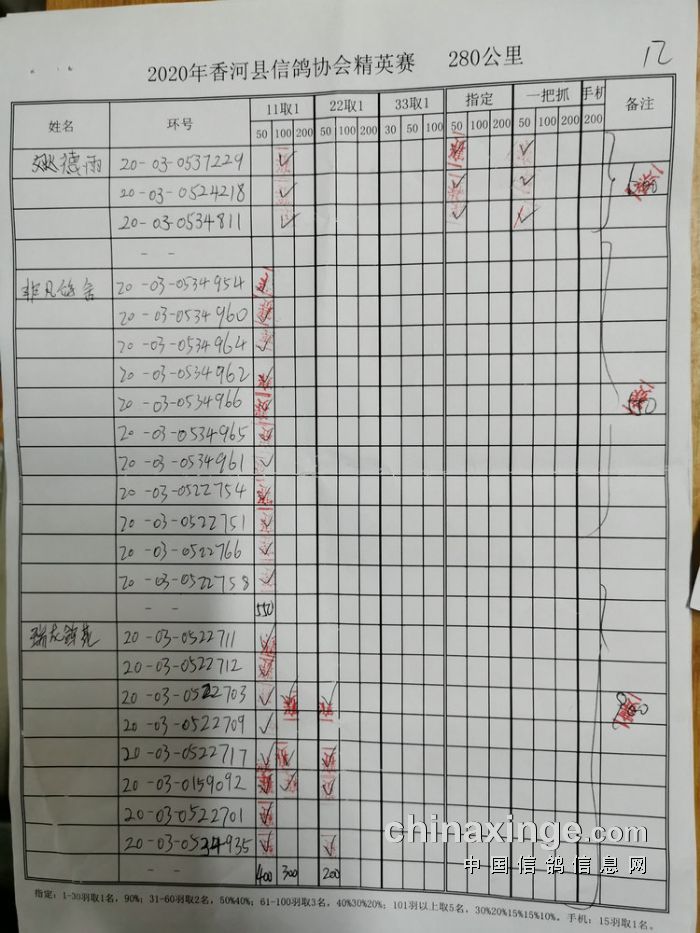 2020年香河县信鸽协会精英赛 280公里
12
姓名 环号 11取1 22取1 33取1 指定 一把抓 手机 备注
50 100 200 50 100 200 30 50 100 50 100 200 50 100 200 200
德雨 20-03-0537229 ✓ ✓
20-03-0524218 ✓ ✓ ✓
20-03-0534811 ✓ ✓ ✓
- -
非凡鸽舍 20-03-0534954
20-03-0534960
20-03-0534964
20-03-0534962
20-03-0534966
20-03-0534965
20-03-0534961 ✓
20-03-0522754
20-03-0522751
20-03-0522766
20-03-0522758
- - 550
瑞龙鸽苑 20-03-0522711
20-03-0522712
20-03-0522703 ✓
20-03-0522709 ✓
20-03-0522717
20-03-0159092
20-03-0522701
20-03-0524935
- - 400 300 200
chinaxinge.com
中国信鸽信息网
指定：1-30羽取1名，90%；31-60羽取2名，50%40%；61-100羽取3名，40%30%20%；101羽以上取5名，30%20%15%15%10%。手机：15羽取1名。